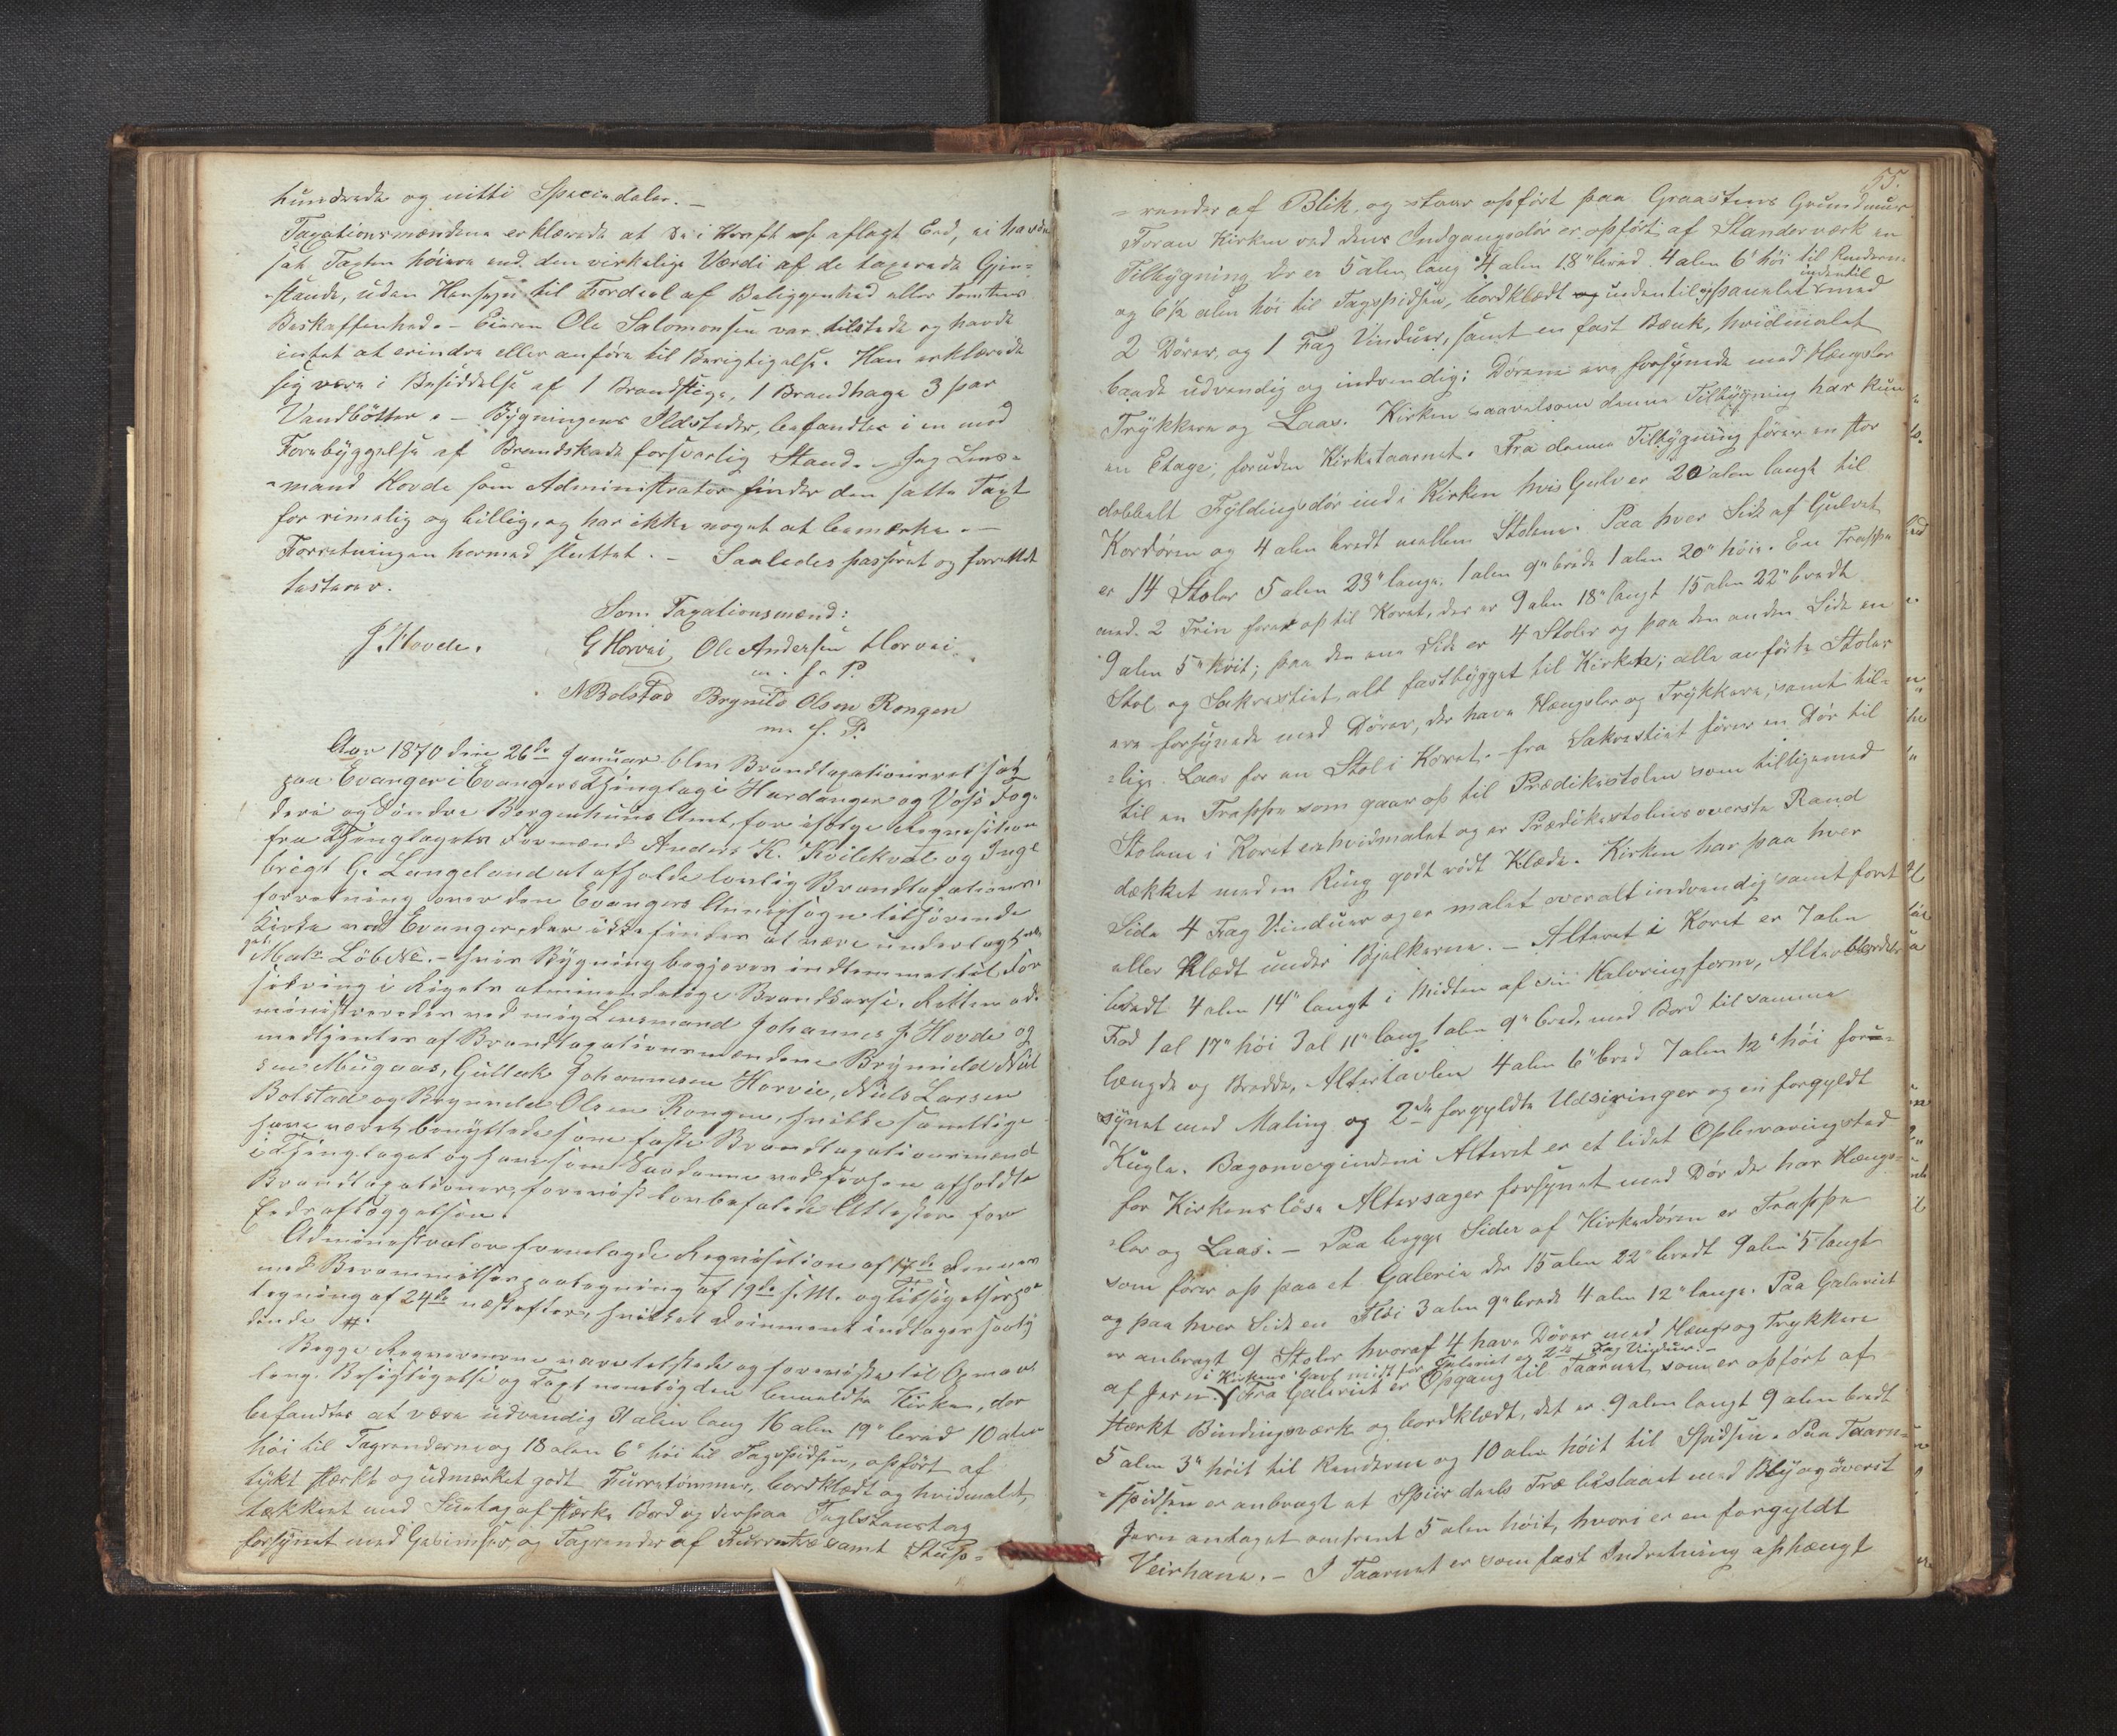 hundrede og nitti Speciedaler. –
Taxationsmændene erklærede at de i Kraft af aflagt Eed, ei havde
sat Taxten høiere end den virkelige Værdi af de taxerede Gjen-
-stande, uden Hensyn til Fordeel af Beliggenhed eller Tomtens
Beskaffenhed. – Eieren Ole Salomonsen var tilstede og havde
intet at erindre eller anføre til Berigtigelse. Han erklærede
sig være i Besiddelse af 1 Brandstige, 1 Brandhage 3 par
Vandbøtter. – Bygningens Ildsteder, befandtes i en mod
Forebyggelse af Brandskade forsvarlig Stand. – Jeg Lens-
-mand Hovde som Administrator finder den satte Taxt
for rimelig og billig, og har ikke noget at bemærke. –
Forretningen hermed sluttet. – Saaledes passeret og forrettet
testerer.
Som Taxationsmænd:
J. Hovde. G Horvei, Ole Andersen Horvei
m. f. P.
N Bolstad Brynild Olsen Rongen
m. f. P.
Aar 1870 den 26de Januar blev Brandtaxationsret sat
paa Evanger i Evangers Thinglag i Hardanger og Voss Fog-
deri og Søndre Bergenhuus Amt, for ifølge Requisition
fra Thinglagets Formænd Anders K. Kvilekval og Inge-
brigt G. Langeland at afholde lovlig Brandtaxations-
forretning over den Evangers Annexsogn tilhørende
Kirke ved Evanger, der ikke findes at være underlagt no-
get Matr. Løb No. – hvis Bygning begjeres indlemmet til For-
sikring i Rigets almindelige Brandkasse. Retten ad-
ministreredes ved mig Lensmand Johannes J Hovde og
medtjentes af Brandtaxationsmændene Brynild Niel
sen Mugaas, Gullek Johannesen Horvie, Niels Larsen
Bolstad og Brynild Olsen Rongen, hvilke samtlige
have været benyttede som faste Brandtaxationsmænd
i Thinglaget og have som Saadanne ved før afholdte
Brandtaxationer, foreviist lovbefalede Attester for
Eedsaflæggelsen.
Administrator fremlagde Requisition af 17de dennes
med Berammelsespaategning af 19de s. M. og Tilsigelsespa-
tegning af 24de næstefter, hvilket Document indtages saaly
dende #.
Begge Requirenterne vare tilstede og foreviste til Opmaa
ling, Besigtigelse og Taxt nemlig den bemeldte Kirke, der
befandtes at være udvendig 31 alen lang 16 alen 19" bred 10 alen
høi til Tagrenderne og 18 alen 6" høi til Tagspidsen, opført af
tykt stærkt og udmærket godt Furretømmer, bordklædt og hvidmalet,
tækket med Suutag af stærke Bord og derpaa Teglsteenstag
forsynet med Gesimser, og Tagrender af Furretræ samt Stup-
55.
-render af Blik, og staar opført paa Graasteens Grundmuur
Foran Kirken ved dens Indgangsdør er opført af Standerværk en
Tilbygning der er 5 alen lang 4 alen 18" bred 4 alen 6" høi til Renderne
indentil
og 6½ alen høi til Tagspidsen, bordklædt udentil og panelet med
2 Dører, og 1 Fag Vinduer, samt en fast Bænk, hvidmalet
baade udvendig og indvendig: Dørene ere forsynede med Hængsler
Trykkere og Laas. Kirken saavelsom denne Tilbygning har kun
en Etage, foruden Kirketaarnet. Fra denne Tilbygning fører en stor
dobbelt Fyldingsdør ind i Kirken hvis Gulv er 20 alen langt til
Kordøren og 4 alen bredt mellem Stolene. Paa hver Side af Gulvet
er 14 Stoler 5 alen 23" lange, 1 alen 9" brede 1 alen 20" høie. En Trappe
med 2 Trin fører op til Koret, der er 9 alen 18" langt 15 alen 22" bredt
9 alen 5" høit; paa den ene Side er 4 Stoler og paa den anden Side en
Stol og Sakrestiet, alt fastbygget til Kirken; alle anførte Stoler
ere forsynede med Dører, der have Hængsler og Trykkere, samt til-
-lige Laas for en Stol i Koret. – fra Sakrestiet fører en Dør til
til en Trappe som gaar op til Prædikestolen som tilligemed
Stolene i Koret er hvidmalet og er Prædikestolens øverste Rand
dækket med en Ring godt rødt Klæde. Kirken har paa hver
Side 4 Fag Vinduer og er malet overalt indvendig samt foret
eller klædt under Bjelkerne. – Alteret i Koret er 7 alen
bredt 4 alen 14" langt i Midten af sin Halvringform, Alterbordets
Fod 1 al 17" høi 3 al 11" lang 1 alen 9" bred, med Bord til samme
længde og Bredde, Altertavlen 4 alen 6" bred 7 alen 12" høi for-
synet med Maling og 2de forgyldte Udsiringer og en forgyldt
Kugle. Bagom indeni Alteret er et lidet Opbevaringssted
for Kirkens løse Altersager forsynet med Dør der har Hængs-
-ler og Laas. – Paa begge Sider af Kirkedøren er Trappe
som fører op paa et Galerie der 15 alen 22" bredt 9 alen 5" langt
og paa hver Side en Fløi 3 alen 9" bred 4 alen 12" lange. Paa Galeriet
er anbragt 9 Stoler hvoraf 4 have Dører med Hængs og Trykkere
i Kirkens Gavl midt for Galeriet er 2de Fag Vinduer. –
af Jern. Fra Galeriet er Opgang til Taarnet som er opført af
stærkt Bindingsværk og bordklædt, det er 9 alen langt 9 alen bredt
5 alen 3" høit til Renderne og 10 alen høit til Spidsen. Paa Taarn-
-spidsen er anbragt et Spiir deels Træ beslaaet med Bly og øverst
Jern antaget omtrent 5 alen høit, hvori er en forgyldt
Veirhane. – I Taarnet er som fast Indretning ophængt